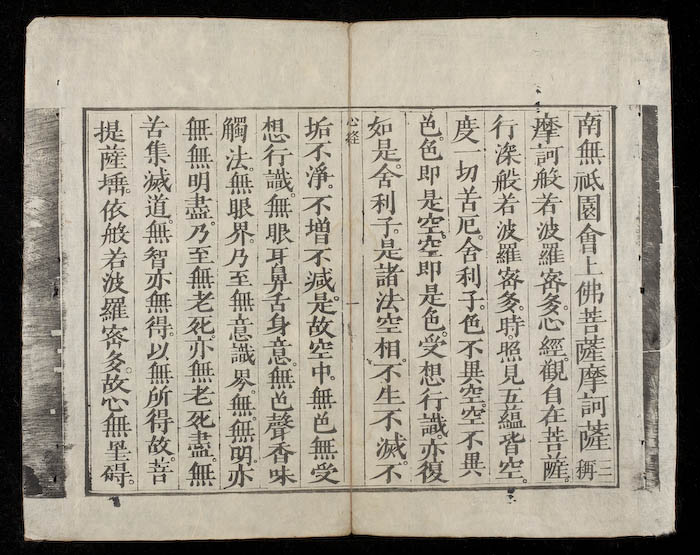 南無祇園會上佛菩薩摩訶薩 三稱
摩訶般若波羅密多心經。觀自在菩薩。
行深般若波羅密多時。照見五蘊皆空。
度一切苦厄。舍利子。色不異空。空不異
色。色即是空。空即是色。受想行識。亦復
如是。舍利子。是諸法空相。不生不滅。不
心経 一
垢不淨。不增不減。是故空中。無色無受
想行識。無眼耳鼻舌身意。無色聲香味
觸法。無眼界。乃至無意識界。無無明。亦
無無明盡。乃至無老死。亦無老死盡。無
苦集滅道。無智亦無得。以無所得故。菩
提薩埵。依般若波羅密多。故心無罣碍。